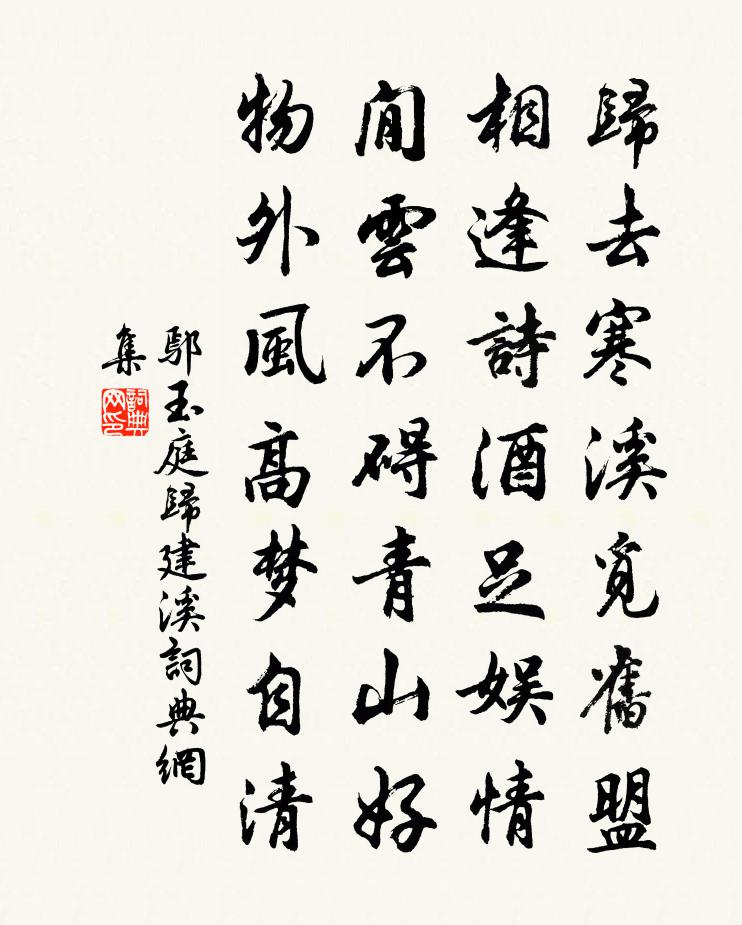 歸去寒溪覓舊盟
相逢詩酒足娱情
閒雲不碍青山好
物外風高梦自清
鄔玉庭歸建溪詞典網
集
詞典
网印